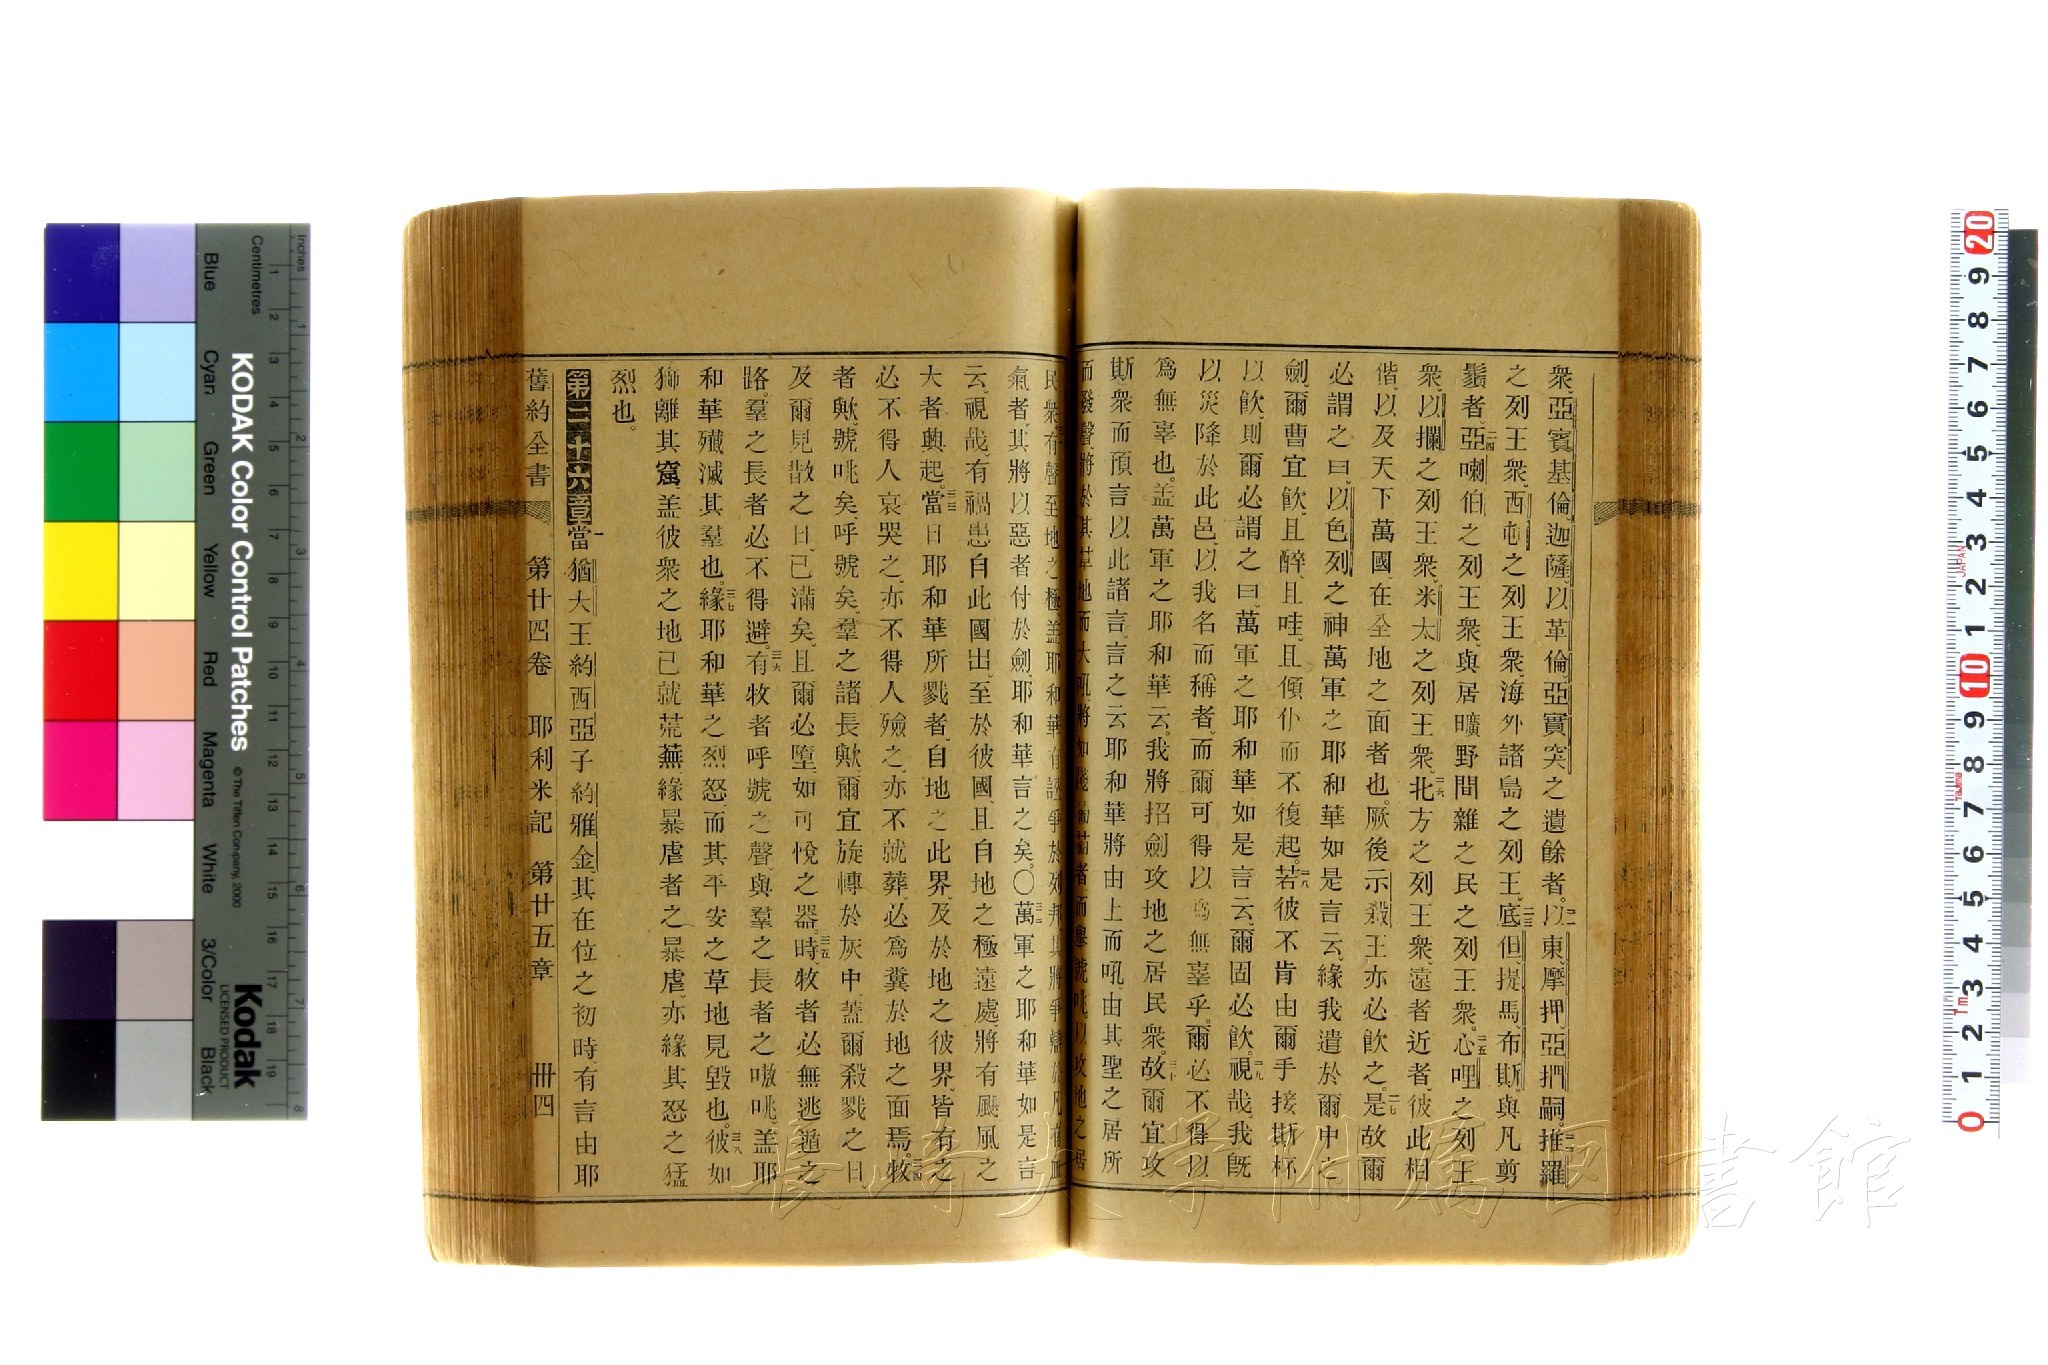 衆、亞賓基倫、迦薩、以革倫、亞實突之遺餘者。二一以東、摩押、亞捫嗣。二二推羅
之列王衆、西屯之列王衆、海外諸島之列王、二三底但、提馬、布斯、與凡剪
鬚者、二四亞喇伯之列王衆、與居曠野間雜之民之列王衆。二五心哩之列王
衆、以攔之列王衆、米太之列王衆、二六北方之列王衆、遠者近者、彼此相
偕、以及天下萬國、在全地之面者也。厥後示殺王亦必飲之。二七是故爾
必謂之曰、以色列之神萬軍之耶和華如是言云、緣我遣於爾中之
劍、爾曹宜飲、且醉、且哇、且傾仆而不復起。二八若彼不肯由爾手接斯杯
以飲、則爾必謂之曰、萬軍之耶和華如是言云、爾固必飲。二九視哉、我旣
以災降於此邑、以我名而稱者、而爾可得以爲無辜乎。爾必不得以
爲無辜也。盖萬軍之耶和華云。我將招劍攻地之居民衆。三十故爾宜攻
斯衆而預言以此諸言、言之云、耶和華將由上而吼、由其聖之居所
而發聲、將於其草地而大吼、將如踐葡萄者而舉號咷、以攻地之居
民衆、有聲至地之極、盖耶和華有訟爭於列邦、其將爭辯於凡有血
氣者、其將以惡者付於劍、耶和華言之矣。〇三二萬軍之耶和華如是言
云、視哉、有禍患自此國出、至於彼國、且自地之極遠處、將有颶風之
大者興起。三三當日耶和華所戮者、自地之此界、及於地之彼界、皆有之、
必不得人哀哭之、亦不得人殮之、亦不就葬、必爲糞於地之面焉。三四牧
者歟、號咷矣、呼號矣、羣之諸長歟、爾宜旋轉於灰中、盖爾殺戮之日、
及爾見散之日、已滿矣、且爾必墮、如可悅之器。三五時、牧者必無逃遁之
路。羣之長者必不得避。三六有牧者呼號之聲、與羣之長者之嗷咷。盖耶
和華殲滅其羣也。三七緣耶和華之烈怒、而其平安之草地見毀也。三八彼如
獅離其窟、盖彼衆之地已就荒蕪、緣暴虐者之暴虐、亦緣其怒之猛
烈也。
第二十六章 一當猶大王約西亞子約雅金、其在位之初時、有言由耶
舊約全書 第廿四卷 耶利米記 第廿五章 卅四
長崎大学附属図書館
KODAK Color Control Patches
© The Tiffen Company, 2000
Kodak
LICENSED PRODUCT
Inches
Centimetres
1 2 3 4 5 6 7 8 9 10 11 12 13 14 15 16 17 18 19
1 2 3 4 5 6 7 8
Blue Cyan Green Yellow Red Magenta White 3/Color Black
0 1 2 3 4 5 6 7 8 9 10 1 2 3 4 5 6 7 8 9 20
JAPAN